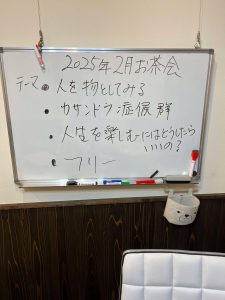 2025年2月お茶会
テーマ
• 人を物としてみる
• カサンドラ症候群
• 人生を楽しむにはどうしたら
いいの?
• フリー